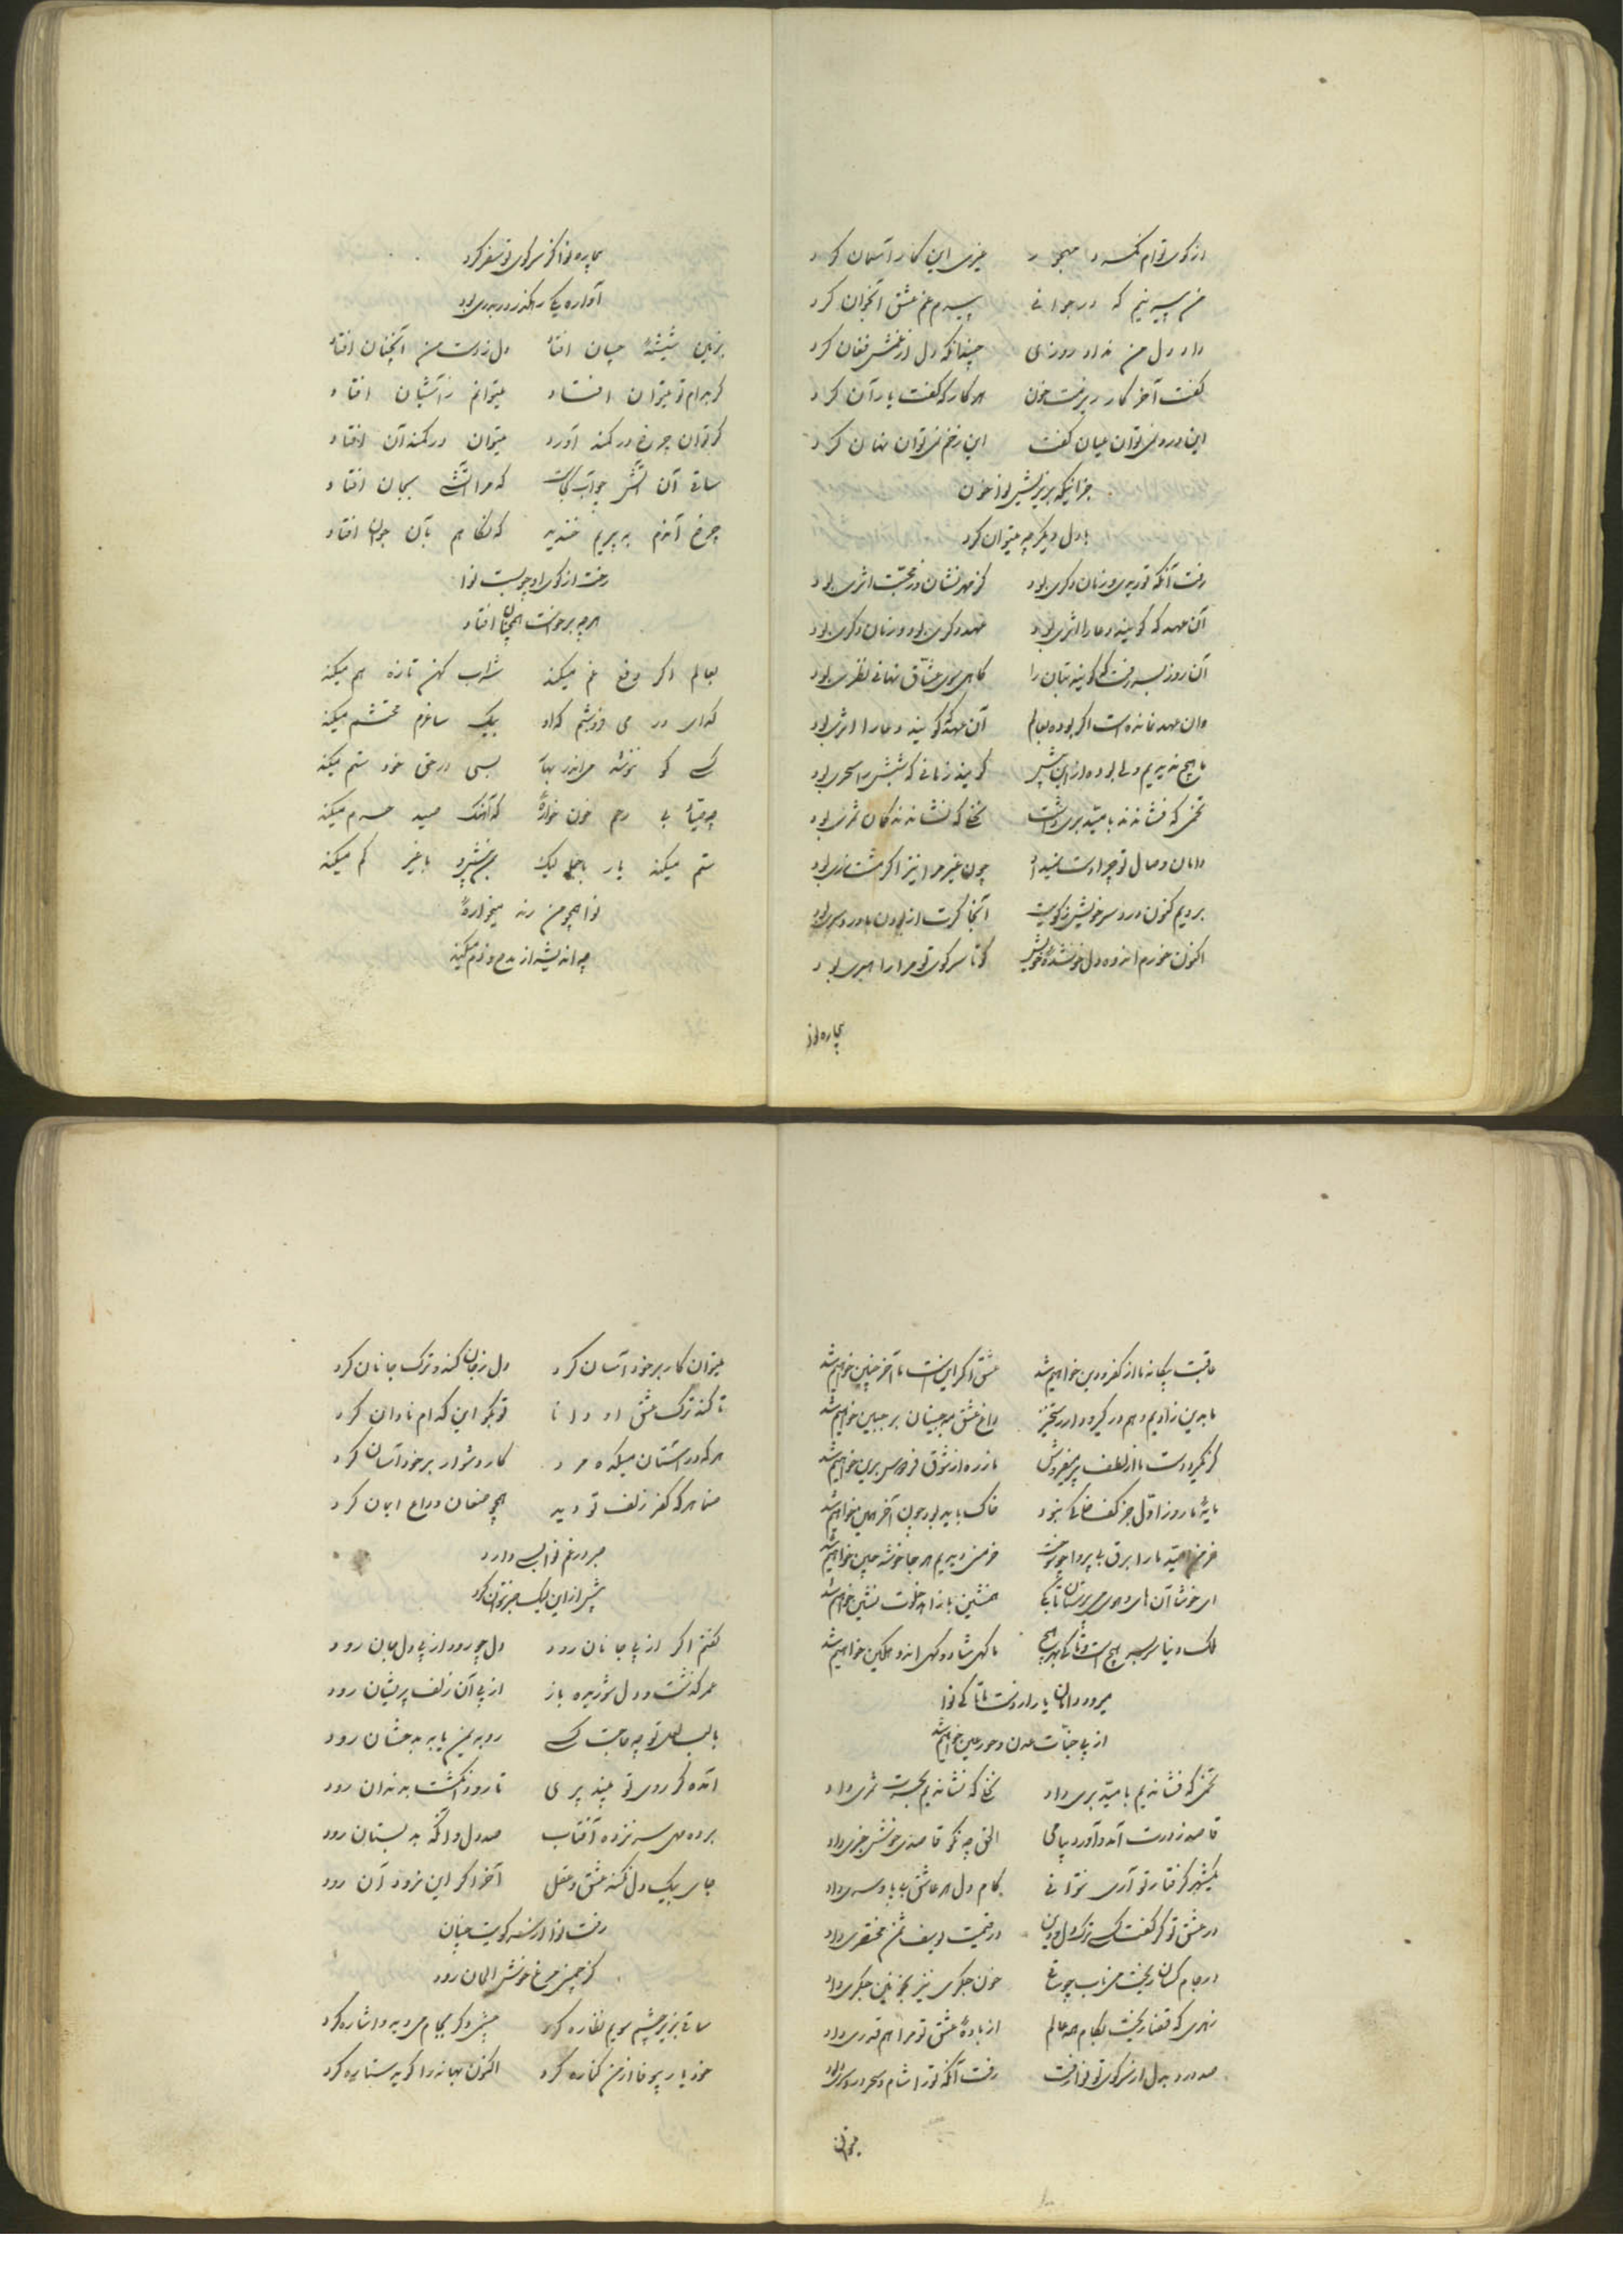 از کوی توام فکند و مهجور جز من این کار آسمان کرد
من پیر نیم که در جوانی پیرم غم عشق آن جوان کرد
داد دل من نداد روزی چندانکه دل از غمش فغان کرد
گفت آخر کار ریزمت خون هر کار که گفت یار آن کرد
این درد نمی‌توان عیان گفت این زخم نمی‌توان نهان کرد
جز اینکه بریزیش نوا خون
با دل دیگر چه میتوان کرد
رفت آنکه تو بدی و زمان دگری بود کز مهر نشان وز محبت اثری بود
آن عهد که گویند دعا را اثری بود عهد دگری بود و زمان دگری بود
آن روز بسر رفت که گویند بتان را گاهی سوی عشاق نهانی نظری بود
وان عهد نمانده است اگر بوده بعالم آن عهد که گویند دعا را اثری بود
ما هیچ ندیدیم ولی بوده ازین پیش گویند زمانی که شبش را سحری بود
تخمی که فشاندند بامید بری داشت نخلی که نشاندند گمان ثمری بود
دامان وصال تو چرا دست
چون غیر مرا نیز اگر مشت زری بود
بردیم کنون درد سر خویش ز کویت آنجا گرت از بودن ما درد سری بود
اکنون خورم اندوه دل خون شده خویش کو تا سر کوی تو مرا راهبری بود
بیچاره نوا
بیچاره نوا کز سر کوی تو سفر کرد
آواره یک رهگذر دربدری بود
دل ز دست من آنچنان افتاد بزمین شیشه چنان افتاد
گر بدام تو میتوان افتاد میتوانم ز آشیان افتاد
گر توان چرخ در کمند آورد میتوان در کمند آن افتاد
ساقی آن آتش چو آب کجاست که مرا آتشی بجان افتاد
چرخ آندم به پیریم خندید که نگاهم بآن جوان افتاد
رخت از کوی او چو بست نوا
هرچه برخواست همچنان افتاد
بعالم اگر دفع غم میکند شراب کهن تازه هم میکند
گدای در می فروشم که او بیک ساغرم محتشم میکند
کسی کو ننوشد می اندر بهار بسی در حق خود ستم میکند
چه صیاد بی رحم خون خواره که آهنگ صید حرم میکند
ستم میکند یار با ما لیک
با غیر کم میکند
نوا همچو من رند میخواره
چه اندیشه از مدح و ذم میکند
عاقبت بیگانه ما از کفر و دین خواهیم شد عشق اگر اینست ما آخر چنین خواهیم شد
ما بدین زادیم و هم در گیر و دار رستخیز داغ عشق مه جبینان بر جبین خواهیم شد
گر نگیرد دست ما از لطف پیر میفروش
مایه ما روز اول جز کف خاکی نبود خاک باید بود چون آخر همین خواهیم شد
خرمن امید ما را برق بی پروا بسوخت خرمنی دیدیم هر جا خوشه چین خواهیم شد
ای خوشا آن های و هوی می پرستان تا بکی همنشین با زاهد خلوت نشین خواهیم شد
ملک دنیا سر بسر هیچ است و تا کی بهر هیچ ما گهی شاد و گهی اندوهگین خواهیم شد
میرود دامان یار از دست ما تا کی نوا
از پی جنات عدن و حور عین خواهیم شد
تخمی که فشاندیم بامید بری داد نخلی که نشاندیم بحسرت ثمری داد
قاصد ز درت آمد و آورد پیامی الحق چه نکو قاصدی خوش خبری داد
یکشهر گرفتار تو آری نتوانی کام دل هر عاشق بی پا و سری داد
در عشق تو گر گفت کسی ترک دل و دین در قیمت یوسف ثمن مختصری داد
در جام کسان ریخت می ناب چو ساقی خون جگری نیز بخونین جگری داد
زهری که قضا ریخت بکام همه عالم از باده عشق تو مرا هم قدری داد
صد درد بدل از سر کوی تو نوا رفت رفت آنکه ترا شام و سحر دردسری داد
میتوان
میتوان کار بر خود آسان کرد دل ز جان کند و ترک جانان کرد
تا کند ترک عشق او دانا تو بگو این کدام نادان کرد
هر که در آستان میکده مرد کار دشوار بر خود آسان کرد
صنما هر که کفر زلف تو دید همچو صنعان وداع ایمان کرد
صبر در غم نوا بسی دارد
بیش از این لیک صبر نتوان کرد
گفتم اگر از پی جانان رود دل چو رود از پی دل جان رود
عمر گذشت و دل شوریده باز از پی آن زلف پریشان رود
با لب لعل تو چه حاجت کسی رو به یمن یا به بدخشان رود
آنده که روی تو بیند پری تا رود انگشت بدندان رود
صد دل و آنگه به بستان رود
جای بیک دل نکند عشق و عقل آخر اگر این نرود آن رود
رفت نوا از سر کویت چنان
کز چمنی مرغ خوش الحان رود
ساقی بزیر چشم سویم نظاره کرد
خود یار بیوفا ز من کناره کرد اکنون بهانه را که به ستاره کرد